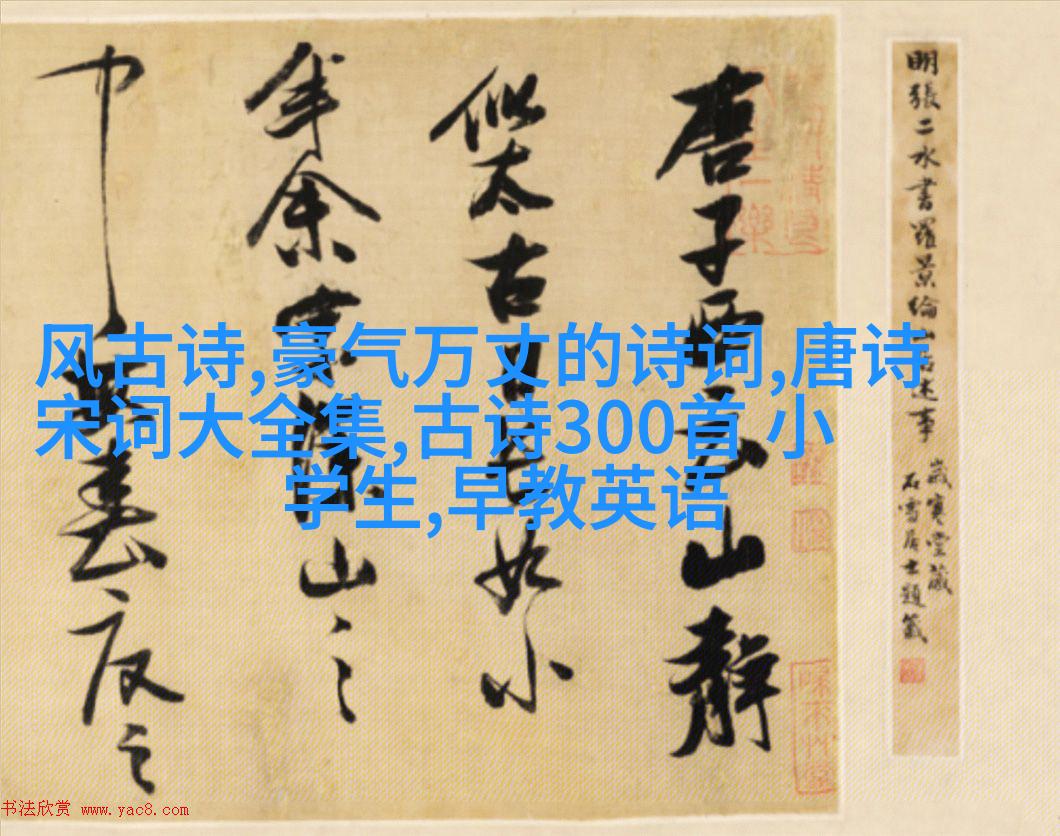 风古诗,豪气万丈的诗词,唐诗
宋词大全集,古诗300首 小
学生,早教英语
明張二水書羅景綸山居述事
歲寒堂藏
石雪居士題籤
唐子西云山靜
似太古日長如小
年余家深山之
中每春夏之
书法欣赏 www.yac8.com